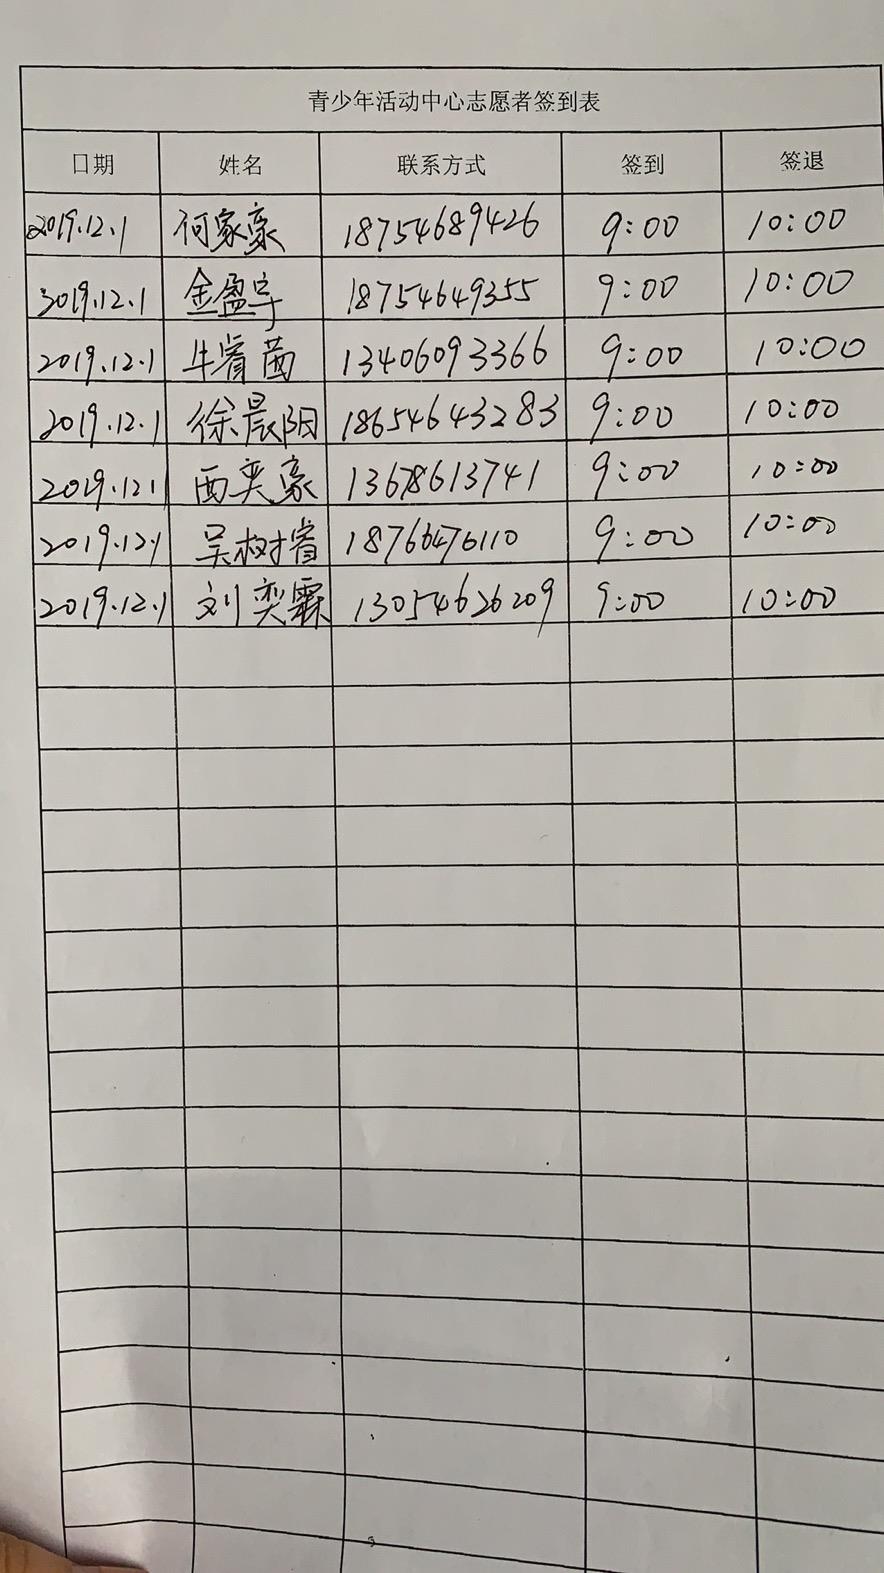 青少年活动中心志愿者签到表
日期 姓名 联系方式 签到 签退
2019.12.1 何家豪 18754689426 9:00 10:00
3019.12.1 金盈宇 18754649355 9:00 10:00
2019.12.1 牛睿茜 13406093366 9:00 10:00
2019.12.1 徐晨阳 18654643283 9:00 10:00
2019.12.1 西奕豪 13678613741 9:00 10:00
2019.12.1 吴树睿 18766476110 9:00 10:00
2019.12.1 刘奕霖 13054626209 9:00 10:00